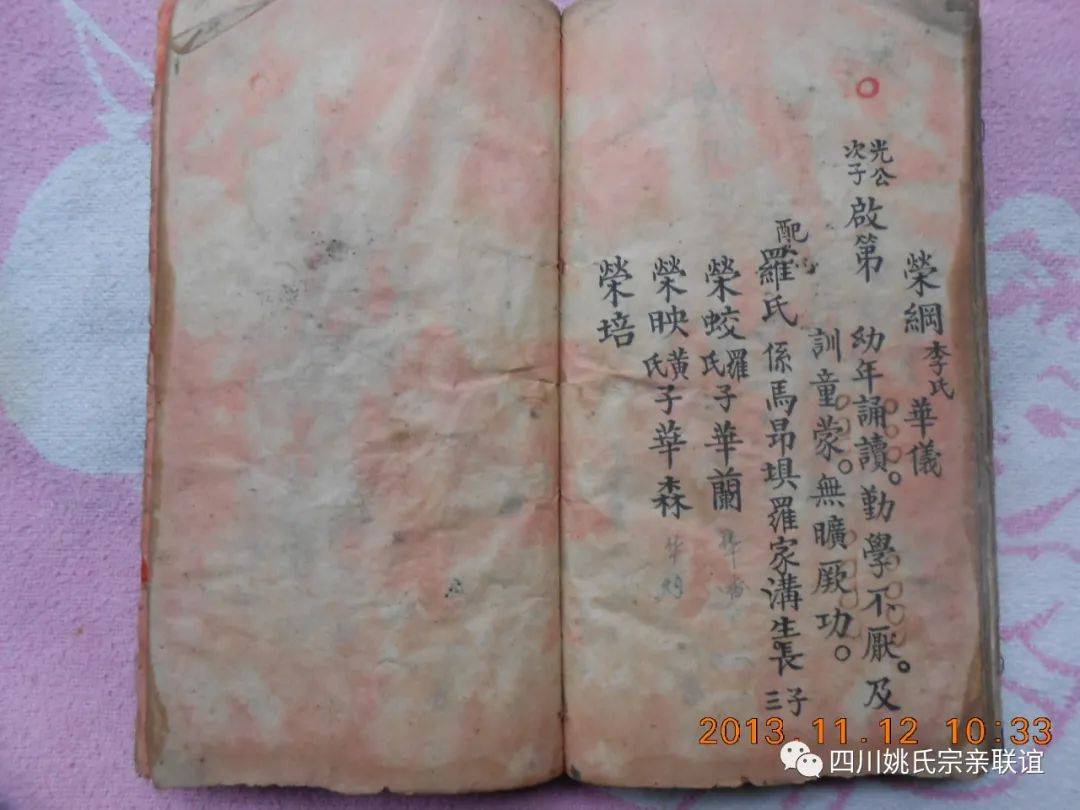 榮綱李氏華儀
光公次子啟第 幼年誦讀。勤學不厭。及
訓童蒙。無曠厥功。
配羅氏 係馬昂埧羅家溝生長 三子
榮蛟羅氏子華蘭
榮映黃氏子華森
榮培
2013.11.12 10:33
四川姚氏宗亲联谊